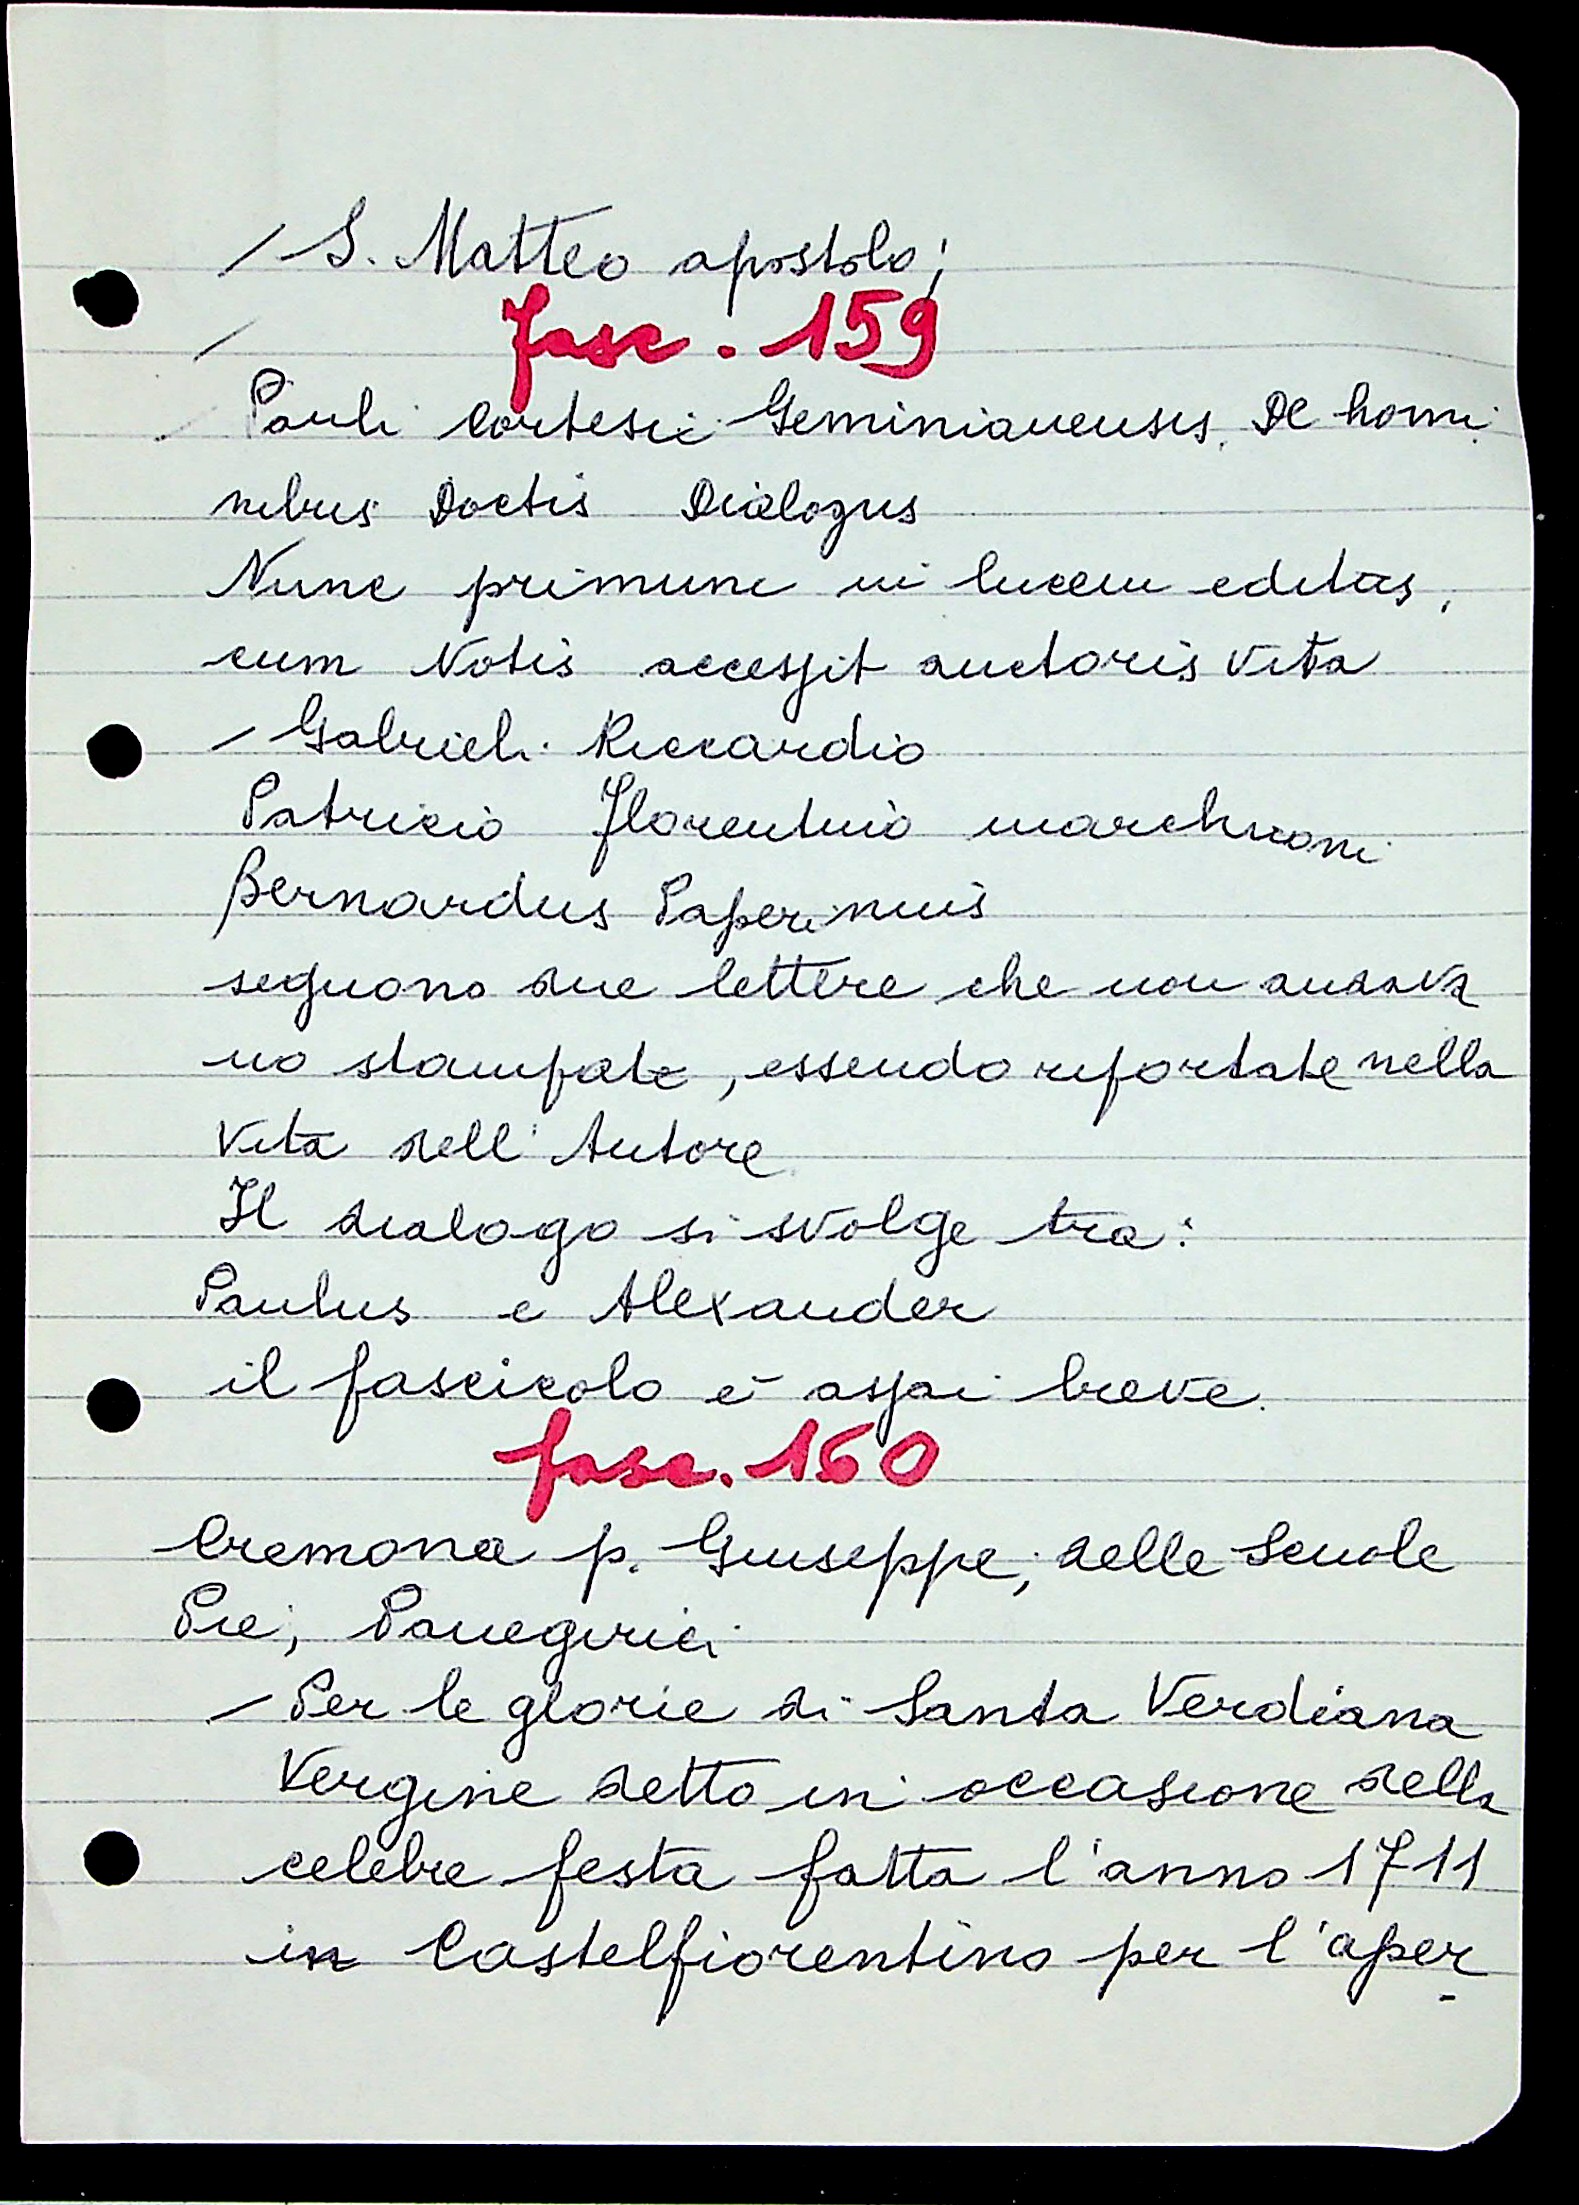 / S. Matteo apostolo;
/ fasc. 159
/ Pauli Cortesii Geminianensis, De homi
nibus Doctis Dialogus
Nunc primum in lucem editus,
cum Notis accessit auctoris Vita
/ Gabrieli Riccardio
Patricio Florentino marchioni
Bernardus Paperinius
seguono due lettere che non andava
no stampate, essendo riportate nella
Vita dell'Autore
Il dialogo si svolge tra:
Paulus e Alexander
il fascicolo è assai breve.
fasc. 160
Cremona p. Giuseppe, delle Scuole
Pie, Panegirici
/ Per le glorie di Santa Verdiana
Vergine detto in occasione della
celebre festa fatta l'anno 1711
in Castelfiorentino per l'aper
-